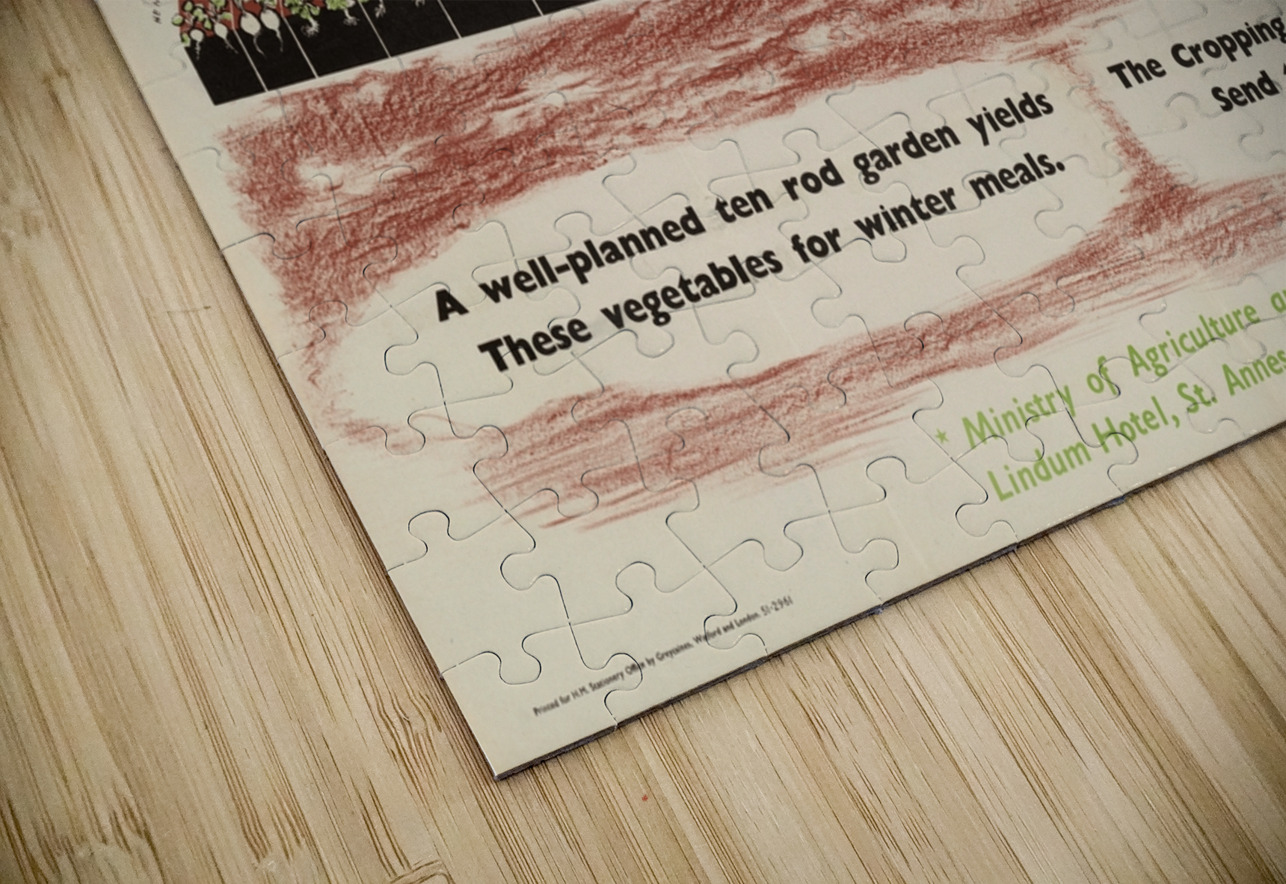 The Cropping
Send
A well-planned ten rod garden yields
These vegetables for winter meals.
* Ministry of Agriculture
Lindum Hotel, St. Annes
Printed for H.M. Stationery Office by Greycaines, Watford and London. 51-2961